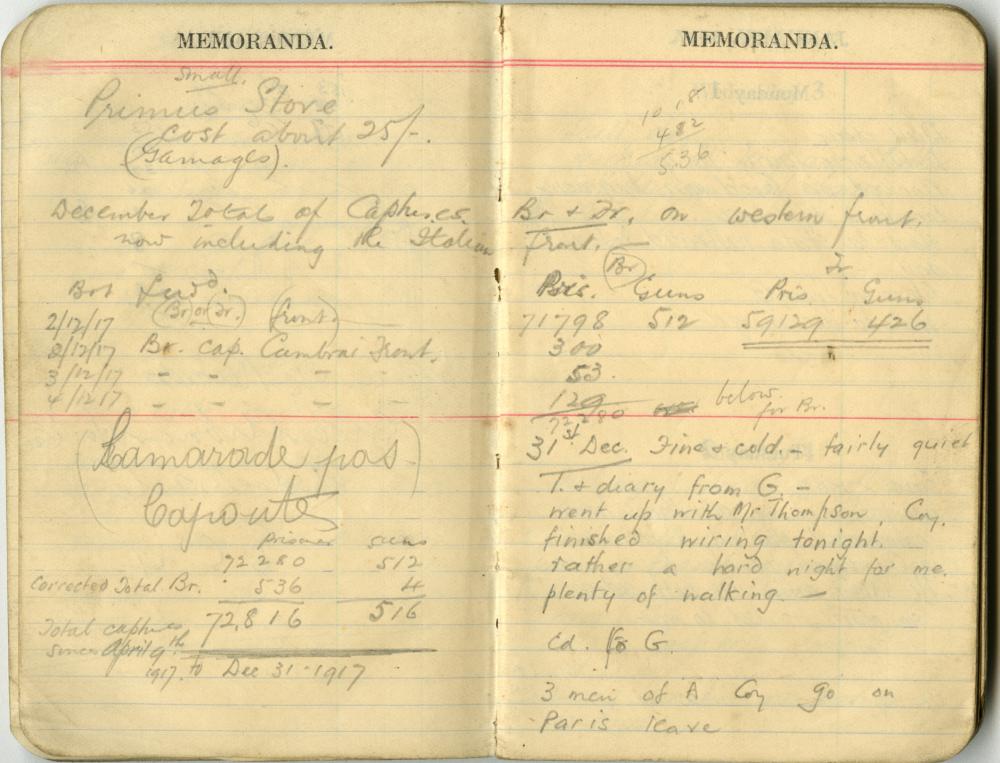 MEMORANDA.
small.
Primus Stove
cost about 25/-.
(Gamages).
December Total of Captures.
now including the Italian
Brt fwd.
(Br) or (Fr.) (front)
2/12/17
2/12/17 Br. cap. Cambrai Front.
3/12/17 - - - -
4/12/17 - - - -
(Kamarade pas
Capoute)
prisoner guns
72280 512
Corrected Total Br. 536 4
72,816 516
Total captures
since April 9th
1917. to Dec 31-1917
MEMORANDA.
10 18
482
536
Br & Fr. on western front.
front.
(Br) Fr.
Pris. Guns Pris. Guns
71798 512 59129 426
300
53.
129
72280 below.
for Br.
31st Dec. Fine & cold. - fairly quiet
T. & diary from G. -
went up with Mr Thompson, Coy.
finished wiring tonight.
rather a hard night for me.
plenty of walking -
Cd. to G.
3 men of A Coy go on
Paris leave